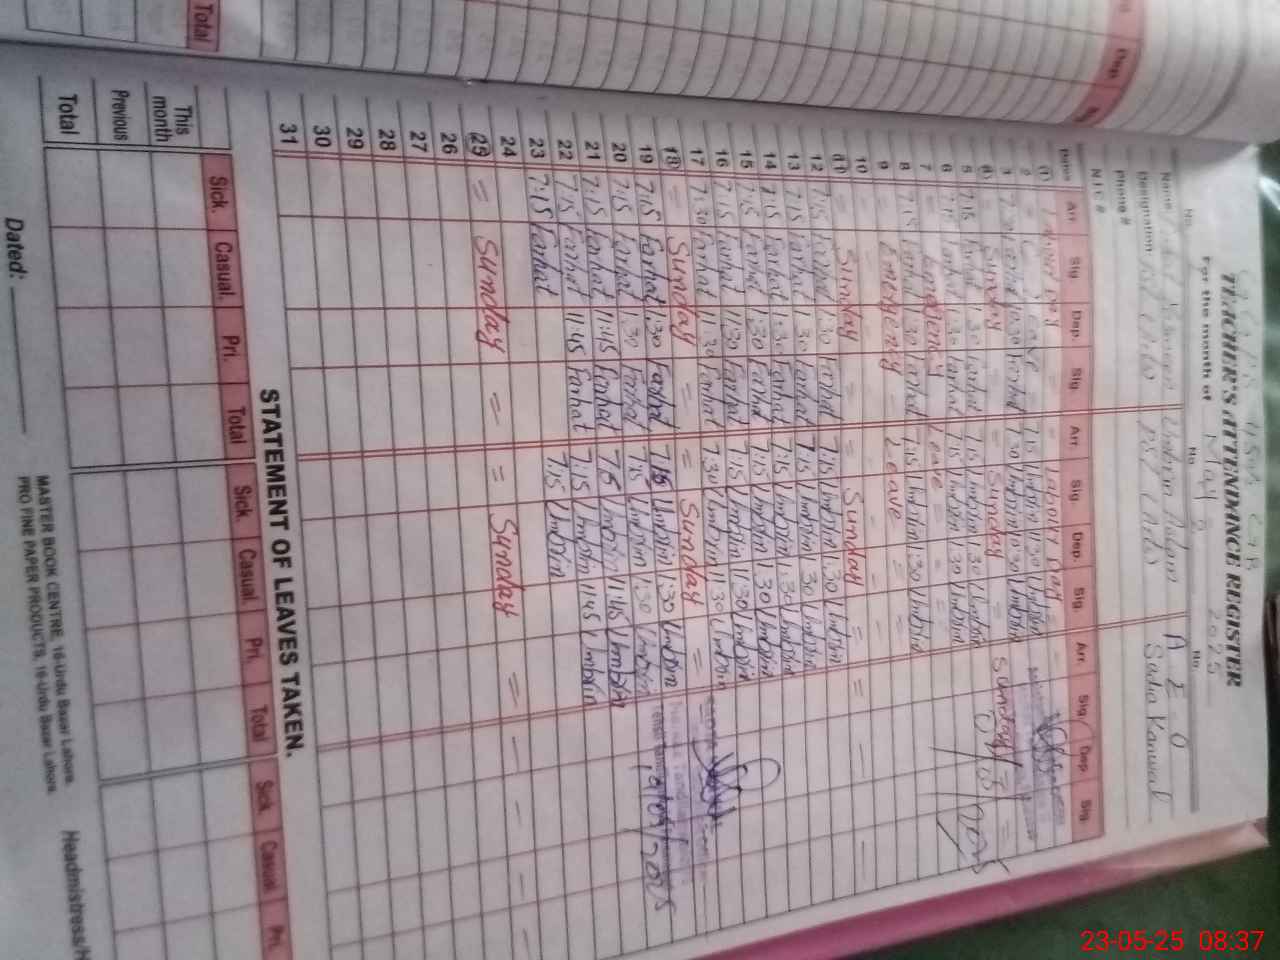 Total
Dep.
TEACHER'S ATTENDANCE REGISTER
For the month of May 2025
No. No. No.
Name Umbrin Aslam A.E.O
Designation PST Sadia Kanwal
Phone #
N.I.C #
Dates Arr. Sig. Dep. Sig. Arr. Sig. Dep. Sig. Arr. Sig. Dep. Sig.
1 Labour Day = Labour Day =
2 Leave 7:15 Umbrin 1:30 Umbrin
3 7:30 Farhat 10:30 Farhat 7:30 Umbrin 10:30 Umbrin
4 = Sunday = = Sunday = Sunday =
5 7:15 Farhat 1:30 Farhat 7:15 Umbrin 1:30 Umbrin
6 7:15 Farhat 1:30 Farhat 7:15 Umbrin 1:30 Umbrin
7 = Leave = =
8 7:15 Farhat 1:30 Farhat 7:15 Umbrin 1:30 Umbrin
9 = Emergency - Leave - =
10
11 = Sunday = = Sunday = =
12 7:15 Farhat 1:30 Farhat 7:15 Umbrin 1:30 Umbrin
13 7:15 Farhat 1:30 Farhat 7:15 Umbrin 1:30 Umbrin
14 7:15 Farhat 1:30 Farhat 7:15 Umbrin 1:30 Umbrin
15 7:15 Farhat 1:30 Farhat 7:15 Umbrin 1:30 Umbrin
16 7:15 Farhat 1:30 Farhat 7:15 Umbrin 1:30 Umbrin
17 7:30 Farhat 11:30 Farhat 7:30 Umbrin 11:30 Umbrin
18 = Sunday = = Sunday =
19 7:15 Farhat 1:30 Farhat 7:15 Umbrin 1:30 Umbrin
20 7:15 Farhat 1:30 Farhat 7:15 Umbrin 1:30 Umbrin
21 7:15 Farhat 11:45 Farhat 7:15 Umbrin 11:45 Umbrin
22 7:15 Farhat 11:45 Farhat 7:15 Umbrin 11:45 Umbrin
23 7:15 Farhat 7:15 Umbrin
24
25 = Sunday = = Sunday =
26
27
28
29
30
31
STATEMENT OF LEAVES TAKEN.
Sick. Casual. Pri. Total Sick. Casual. Pri. Total Sick. Casual Pri.
This month
Previous
Total
MASTER BOOK CENTRE, 16-Urdu Bazar Lahore.
PRO FINE PAPER PRODUCTS, 16-Urdu Bazar Lahore.
Dated:
Headmistress/H
23-05-25 08:37